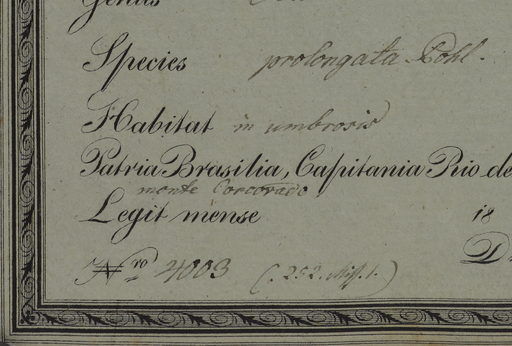 Genus
Species prolongata Pohl.
Habitat in umbrosis
Patria Brasilia, Capitania Rio de
monte Corcovado
Legit mense 18
Nro 4003 (: 252. Miss. 1. )
D